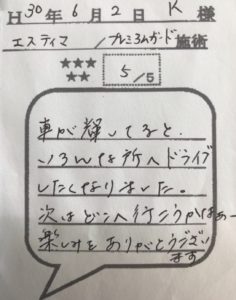 H30年6月2日 K 様
エスティマ /プレミアムガード施術
★★★
★★
5/5
車が輝いてると、
いろんな所へドライブ
したくなりました。
次はどこへ行こうかなぁー
楽しみをありがとうござい
ます